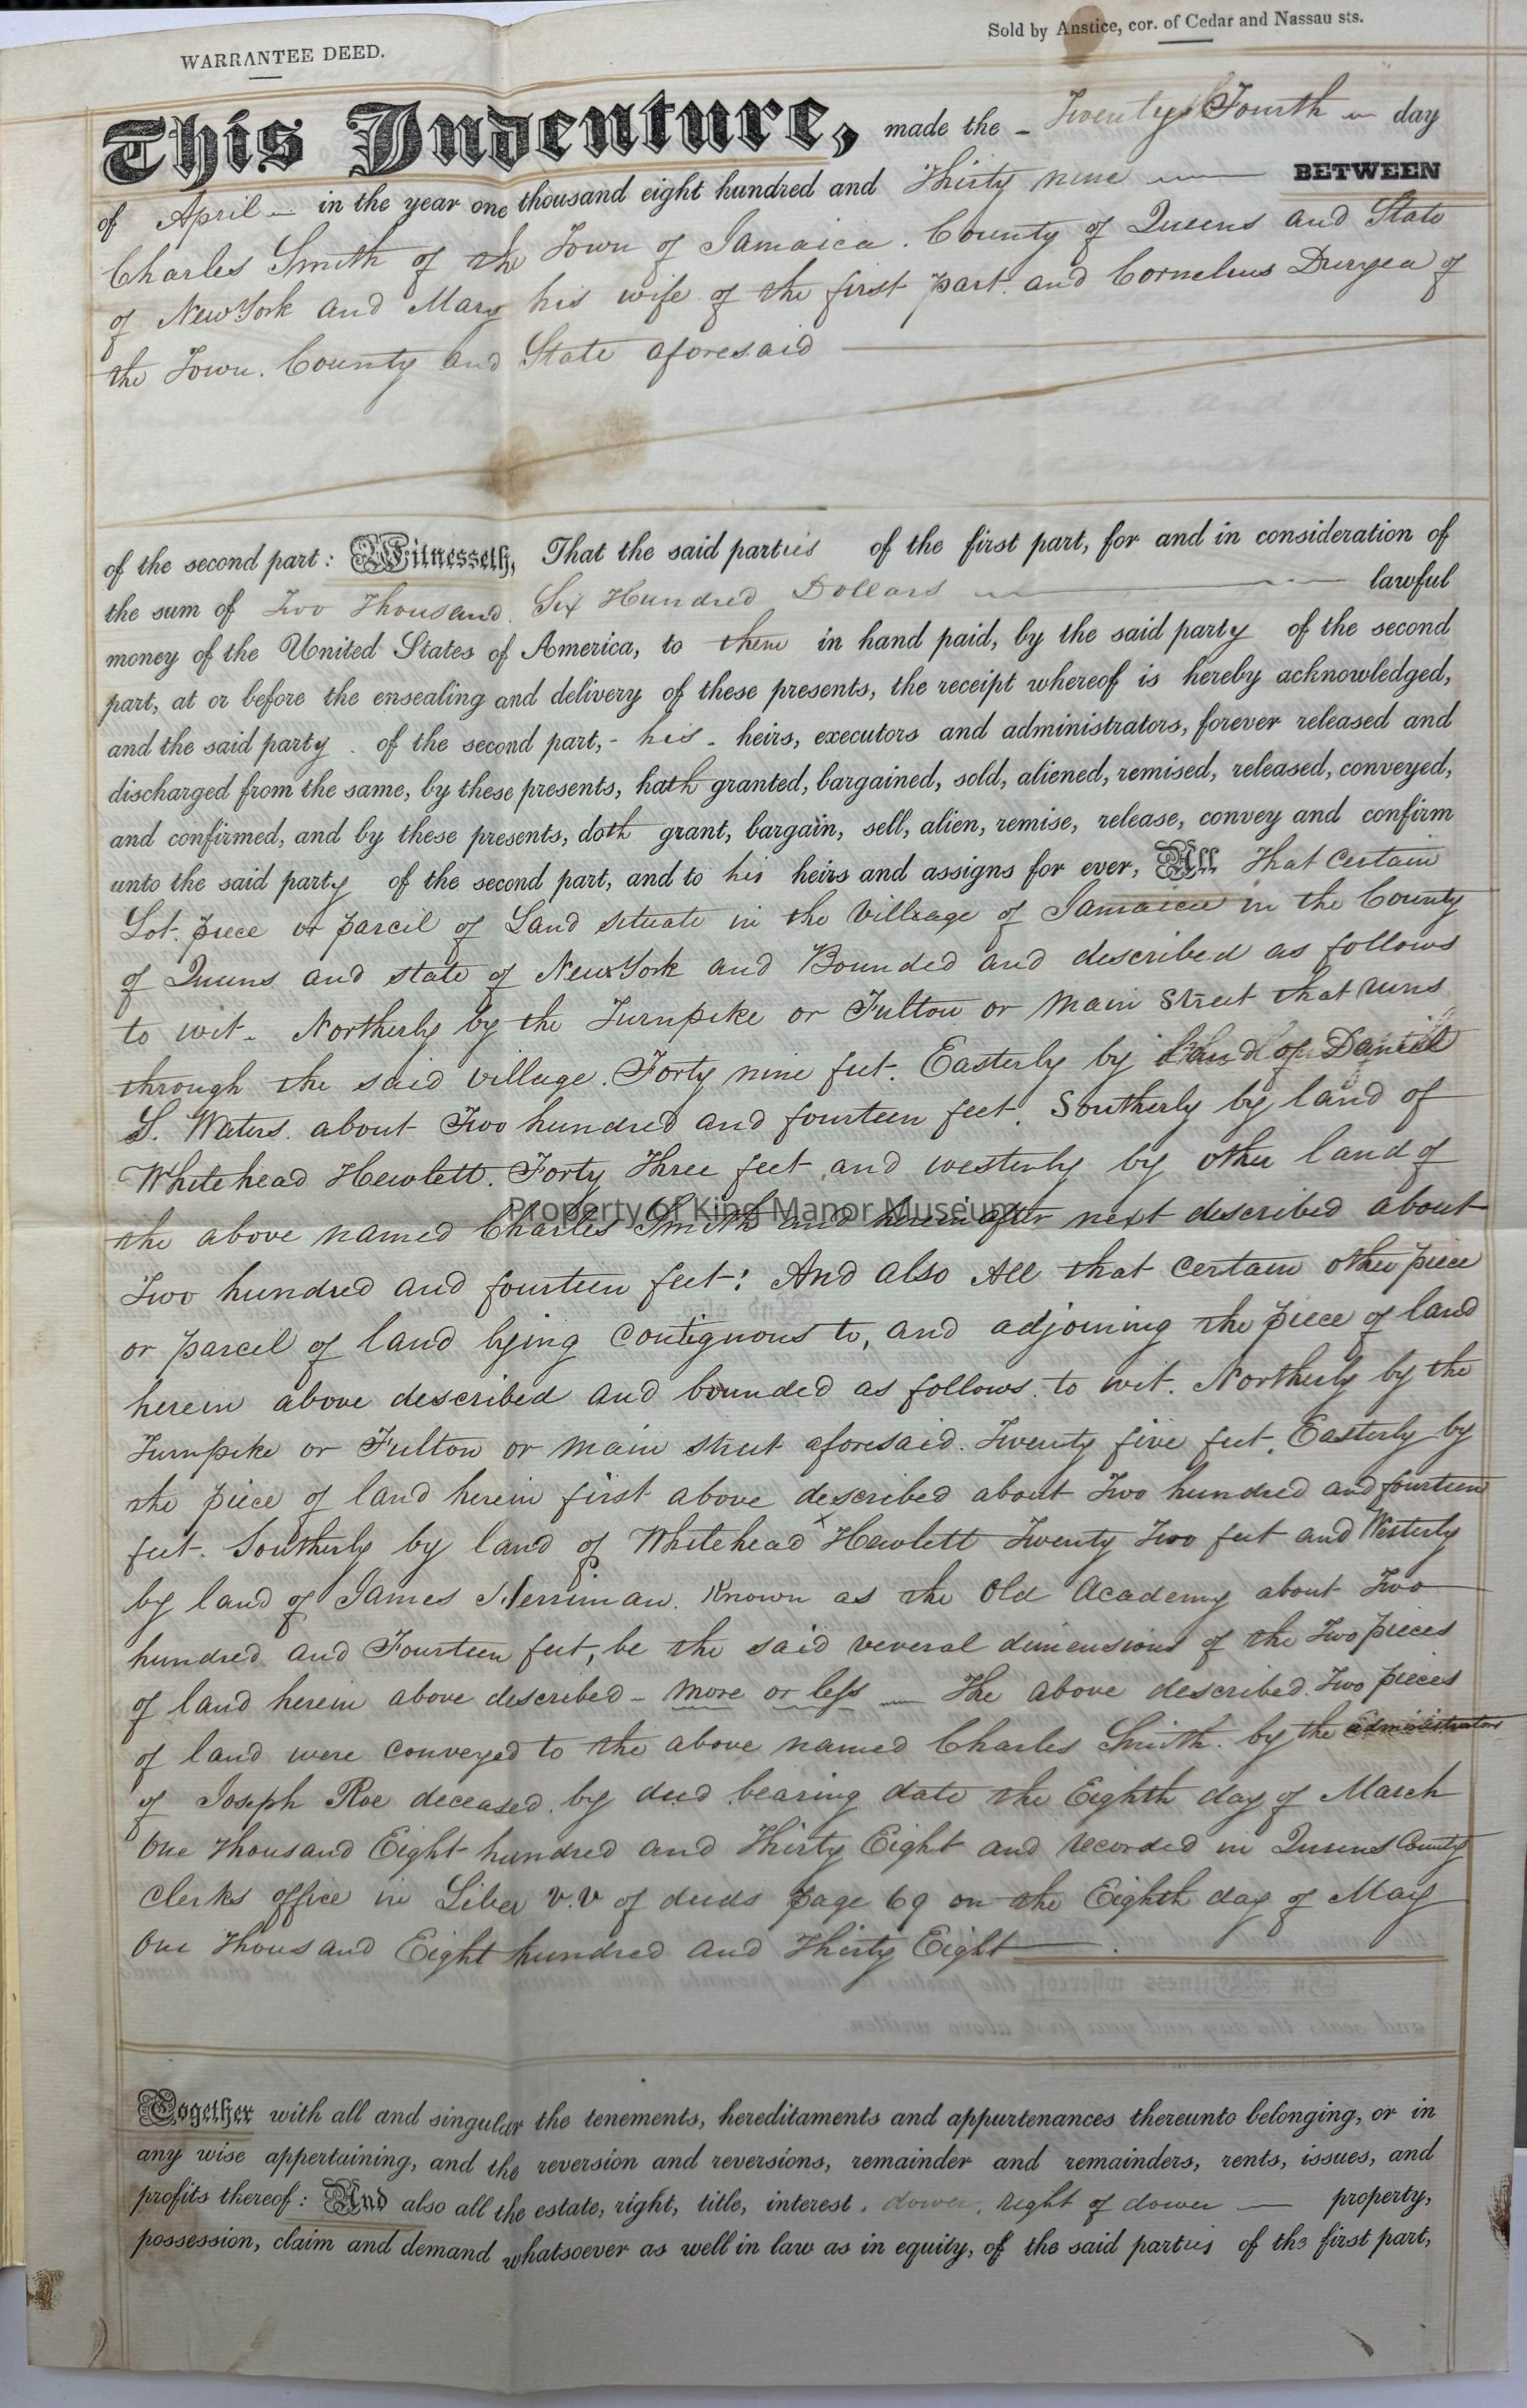 WARRANTEE DEED.
Sold by Anstice, cor. of Cedar and Nassau sts.
This Indenture, made the - Twenty Fourth day
of April in the year one thousand eight hundred and Thirty nine BETWEEN
Charles Smith of the Town of Jamaica. County of Queens and State
of New York and Mary his wife of the first part. and Cornelius Duryea of
the Town. County and State aforesaid
of the second part: Witnesseth, That the said parties of the first part, for and in consideration of
the sum of Two Thousand. Six Hundred Dollars lawful
money of the United States of America, to them in hand paid, by the said party of the second
part, at or before the ensealing and delivery of these presents, the receipt whereof is hereby acknowledged,
and the said party . of the second part, - his - heirs, executors and administrators, forever released and
discharged from the same, by these presents, hath granted, bargained, sold, aliened, remised, released, conveyed,
and confirmed, and by these presents, doth grant, bargain, sell, alien, remise, release, convey and confirm
unto the said party of the second part, and to his heirs and assigns for ever, All That Certain
Lot. piece or parcel of Land situate in the Village of Jamaica in the County
of Queens and state of New York and Bounded and described as follows
to wit - Northerly by the Turnpike or Fulton or Main Street that runs
through the said village. Forty nine feet. Easterly by land of Daniel
S. Waters. about Two hundred and fourteen feet. Southerly by land of
Whitehead Hewlett. Forty Three feet and westerly by other land of
the above named Charles Smith and herein after next described about
Two hundred and fourteen feet: And also All that Certain other piece
or parcel of land lying contiguous to, and adjoining the piece of land
herein above described and bounded as follows. to wit. Northerly by the
Turnpike or Fulton or Main street aforesaid. Twenty five feet. Easterly by
the piece of land herein first above described about Two hundred and fourteen
feet. Southerly by land of Whitehead x Hewlett Twenty Two feet and Westerly
by land of James Herriman. Known as the Old Academy about Two
hundred and Fourteen feet, be the said several dimensions of the Two pieces
of land herein above described - more or less The above described. Two pieces
of land were conveyed to the above named Charles Smith. by the administrators
of Joseph Roe deceased. by deed bearing date the Eighth day of March
One thousand Eight hundred and Thirty Eight and recorded in Queens County
Clerks office in Liber V.V of deeds page 69 on the Eighth day of May
One thousand Eight hundred and Thirty Eight
Together with all and singular the tenements, hereditaments and appurtenances thereunto belonging, or in
any wise appertaining, and the reversion and reversions, remainder and remainders, rents, issues, and
profits thereof: And also all the estate, right, title, interest, dower, right of dower property,
possession, claim and demand whatsoever as well in law as in equity, of the said parties of the first part,
Property of King Manor Museum